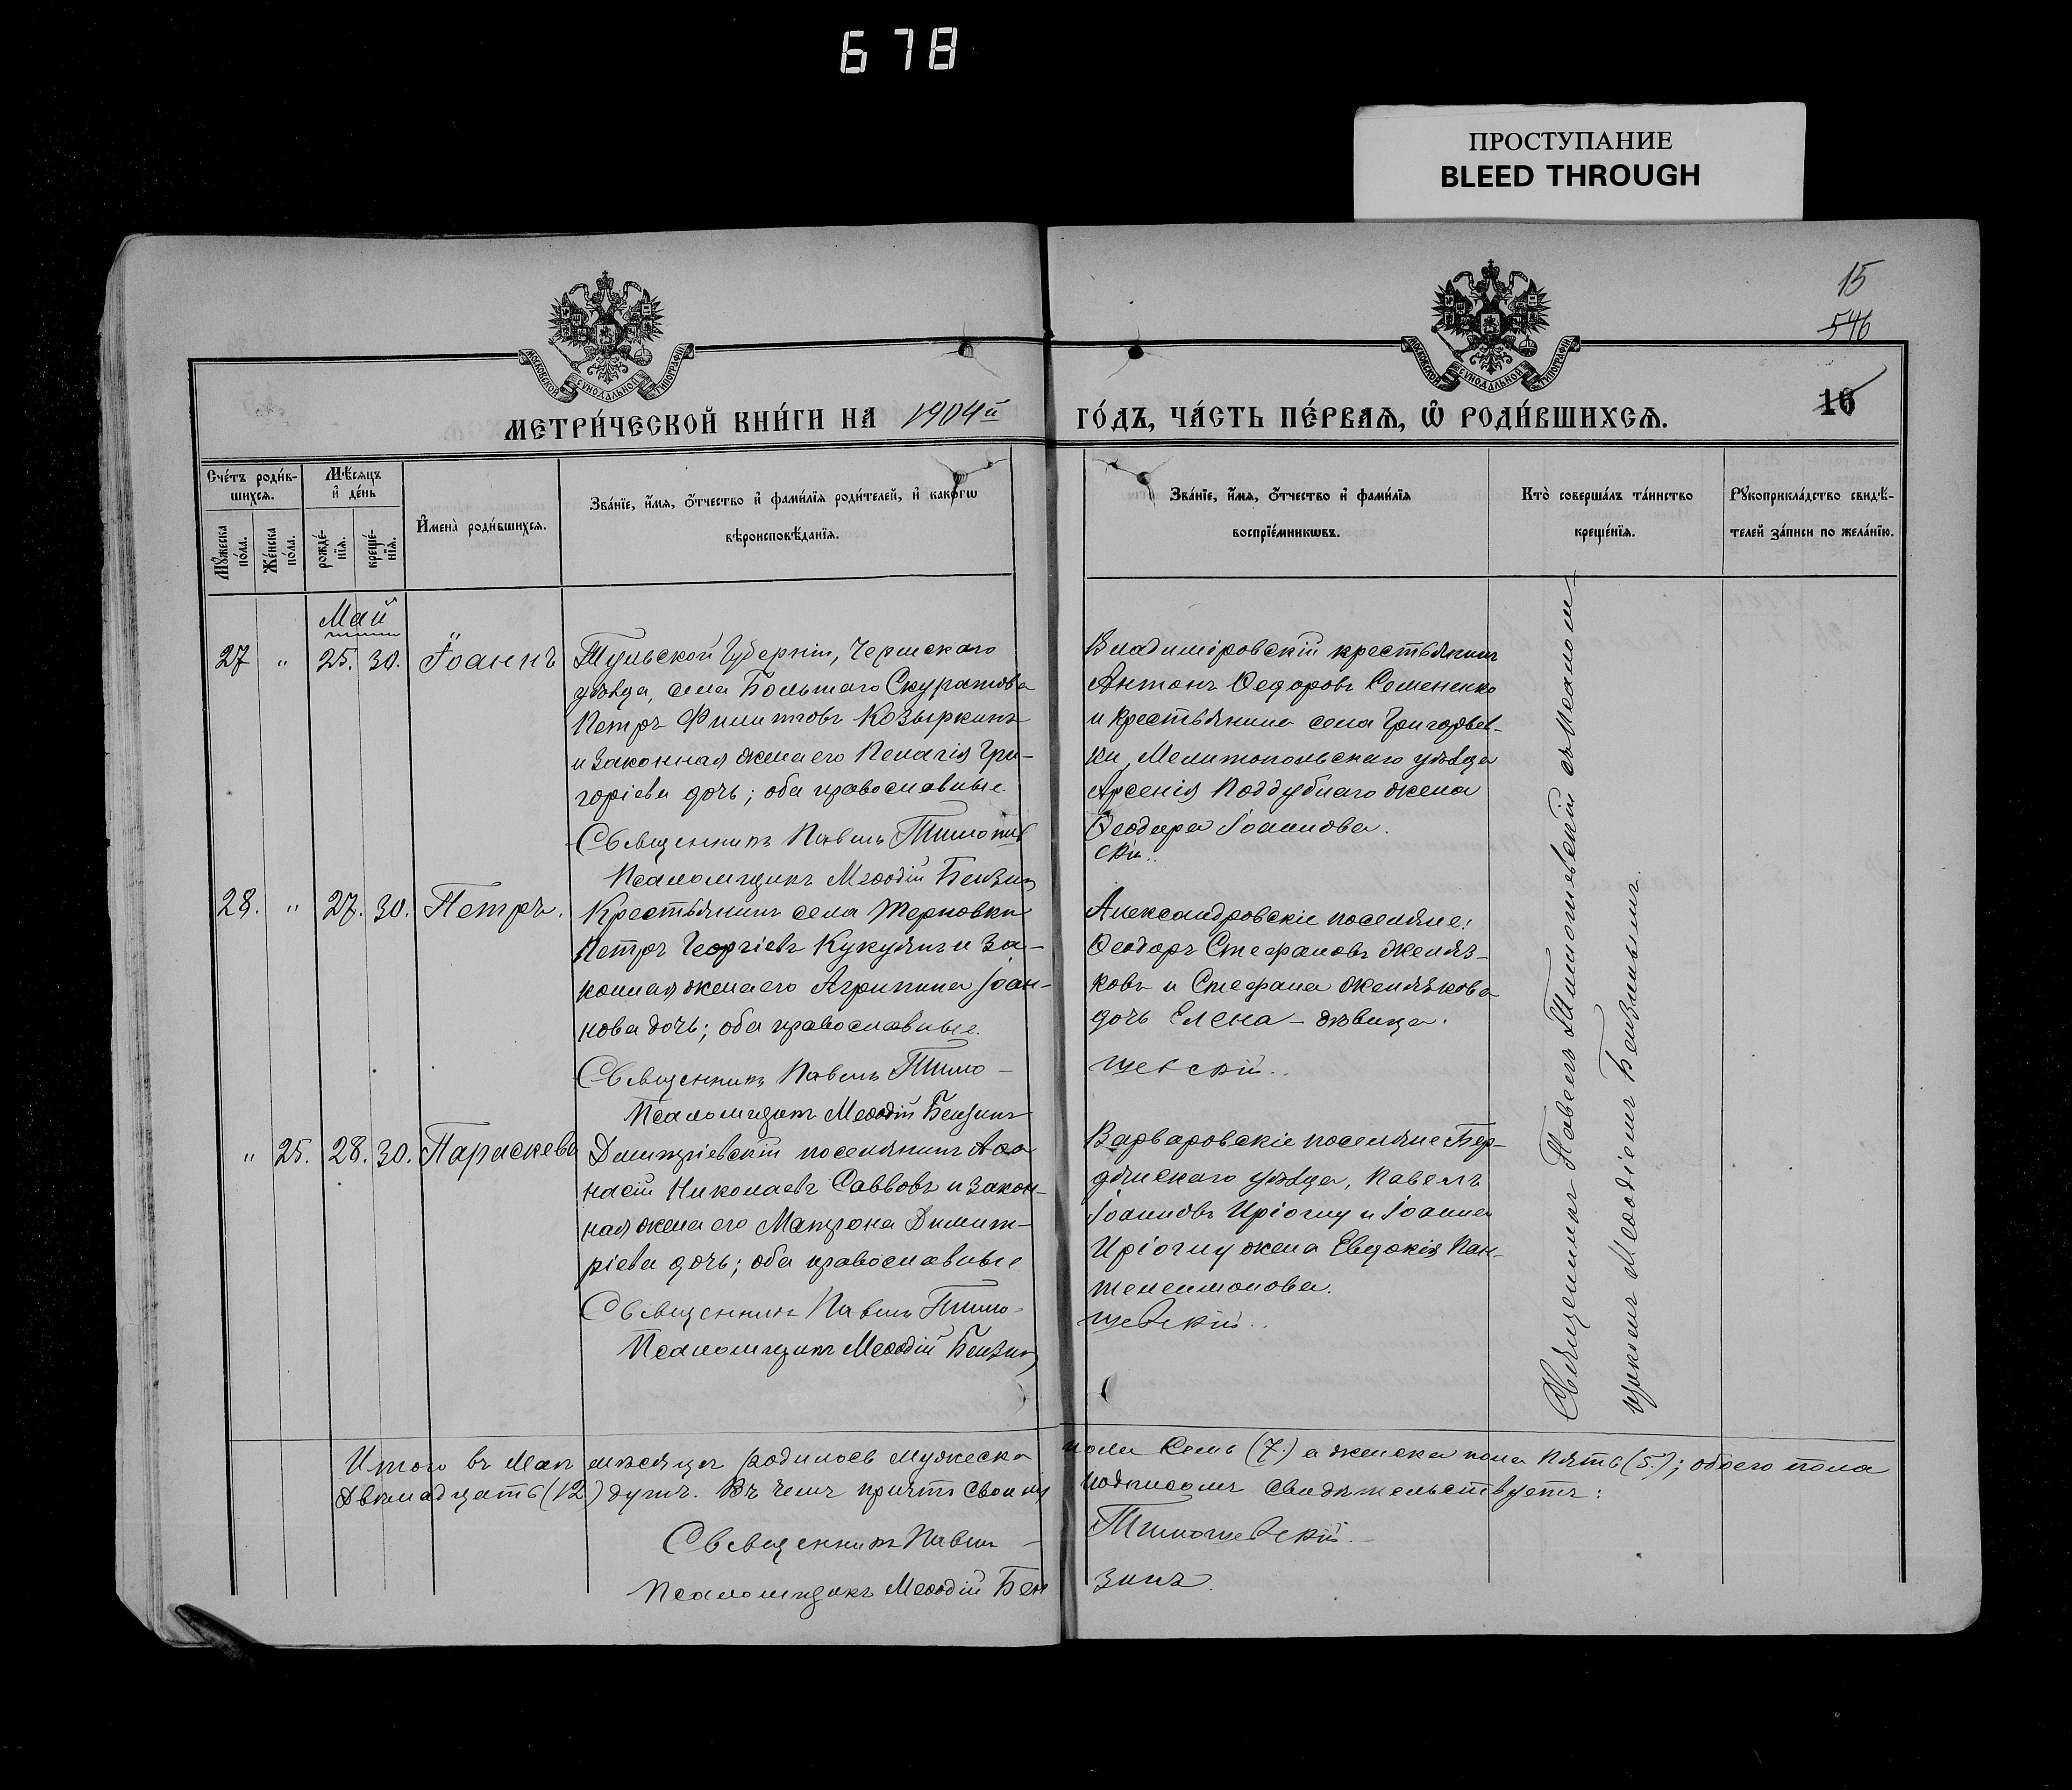 678
ПРОСТУПАНИЕ
BLEED THROUGH
15
546
16
МОСКОВСКОЙ СѴНОДАЛЬНОЙ ТИПОГРАФІИ
МОСКОВСКОЙ СѴНОДАЛЬНОЙ ТИПОГРАФІИ
МЕТРИ́ЧЕСКОЙ КНИ́ГИ НА 1904й ГО́ДЪ, ЧА́СТЬ ПЕ́РВАѦ, Ѡ҆ РОДИ́ВШИХСѦ.
Сче́тъ роди́в-
шихсѧ.
Мꙋ́жеска по́ла.
Же́нска по́ла.
Мѣ́сѧцъ
и҆ де́нь
рожде́-
нїѧ.
креще́-
нїѧ.
И҆мена̀ роди́вшихсѧ.
Зва́нїе, и҆́мѧ, ѻ҆́тчество и҆ фами́лїѧ роди́телей, и҆ како́гѡ
вѣроисповѣ́данїѧ.
Зва́нїе, и҆́мѧ, ѻ҆́тчество и҆ фами́лїѧ
воспрїе́мникѡвъ.
Кто̀ соверша́лъ та́инство
креще́нїѧ.
Рꙋкоприкла́дство свидѣ́-
телей за́писи по жела́нїю.
Май
27 " 25. 30. Іоаннъ
Тульской Губерніи, Чернскаго
уѣзда, села Большаго Скуратова
Петръ Филиповъ Козыркинъ
и законная жена его Пелагія Гри-
горіева дочь; оба православные.
Священникъ Павелъ Тимошев
Псаломщикъ Меѳодій Бензинъ
Владиміровскій крестьянинъ
Антонъ Ѳедоровъ Семененко
и крестьянина села Григорьев-
ки, Мелитопольскаго уѣзда
Арсенія Поддубнаго жена
Ѳеодора Іоаннова.
скій..
28. " 27. 30. Петръ.
Крестьянинъ села Терновки
Петръ Георгіевъ Кукулянъ и за-
конная жена его Агрипина Іоан-
нова дочь; оба православные.
Священникъ Павелъ Тимо-
Псаломщикъ Меѳодій Бензинъ
Александровскіе поселяне:
Ѳеодоръ Стефановъ Желяз-
ковъ и Стефана Желязкова
дочь Елена - дѣвица.
шевскій..
" 25. 28. 30. Параскева
Димитріевскій поселянинъ Аѳа
насій Николаевъ Саввовъ и закон-
ная жена его Матрона Димит-
ріева дочь; оба православные
Священникъ Павелъ Тимо-
Псаломщикъ Меѳодій Бензинъ
Варваровскіе поселяне Бер-
дянскаго уѣзда, Павелъ
Іоанновъ Иріоглу и Іоанна
Иріоглу жена Евдокія Пан-
телеимонова.
шевскій..
Священникъ Павелъ Тимошевскій съ Псалом-
щикомъ Меѳодіемъ Бензинымъ.
Итого въ Маѣ мѣсяцѣ родилось мужеска пола семь (7.) а женска пола пять (5.); обоего пола
двѣнадцать (12.) душъ. Въ чемъ причтъ своимъ подписомъ свидѣтельствуетъ:
Священникъ Павелъ - Тимошевскій.
Псаломщикъ Меѳодій Бен зинъ.